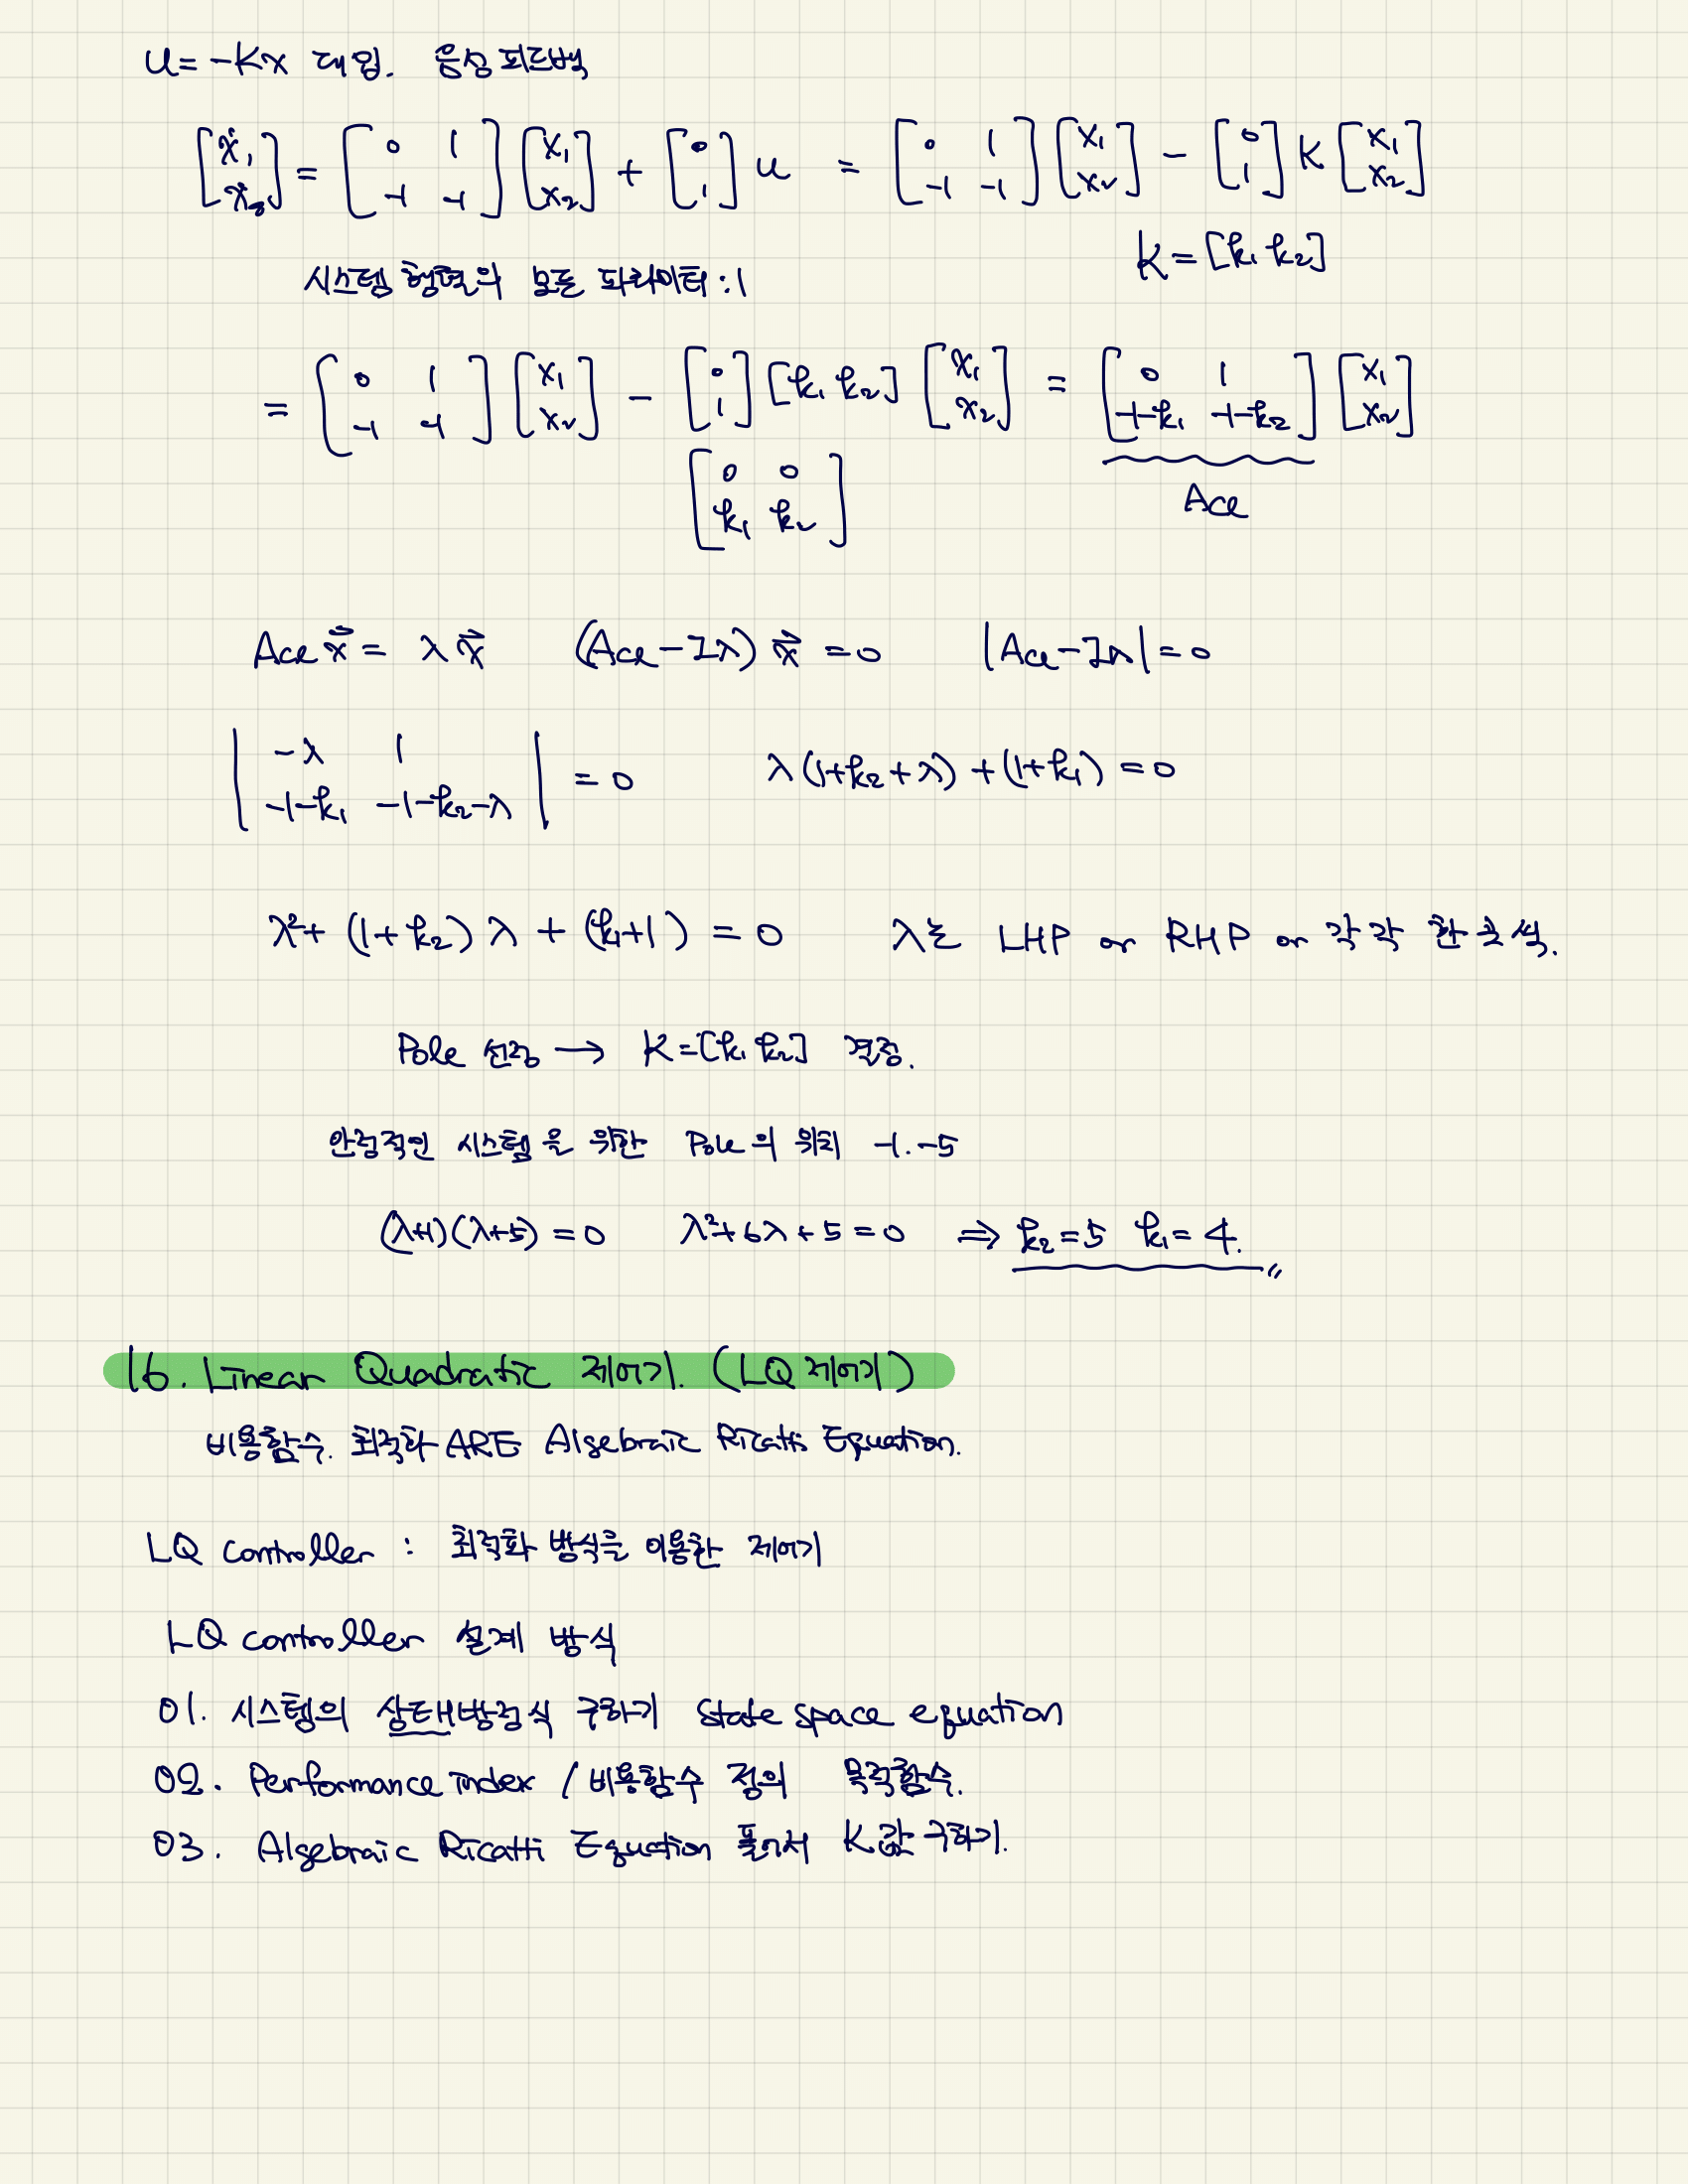 u = -Kx 대입. 음성 피드백
[ẋ₁ ẋ₂] = [0 1 -1 -1] [x₁ x₂] + [0 1] u = [0 1 -1 -1] [x₁ x₂] - [0 1] K [x₁ x₂]
시스템 행렬의 모든 파라미터 : 1 K = [k₁ k₂]
= [0 1 -1 -1] [x₁ x₂] - [0 1] [k₁ k₂] [x₁ x₂] = [0 1 -1-k₁ -1-k₂] [x₁ x₂]
[0 0 k₁ k₂] Acl
Acl x⃗ = λx⃗ (Acl - Iλ) x⃗ = 0 |Acl - Iλ| = 0
|-λ 1 -1-k₁ -1-k₂-λ| = 0 λ(1+k₂+λ) + (1+k₁) = 0
λ² + (1+k₂)λ + (k₁+1) = 0 λ는 LHP or RHP or 각각 한 곳씩.
Pole 선정 → K = [k₁ k₂] 결정.
안정적인 시스템을 위한 Pole의 위치 -1. -5
(λ+1)(λ+5) = 0 λ²+6λ+5 = 0 ⇒ k₂ = 5 k₁ = 4.
16. Linear Quadratic 제어기. (LQ 제어기)
비용함수. 최적화 ARE Algebraic Ricatti Equation.
LQ controller : 최적화 방식을 이용한 제어기
LQ controller 설계 방식
01. 시스템의 상태방정식 구하기 State space equation
02. Performance index / 비용함수 정의 목적함수.
03. Algebraic Ricatti Equation 풀어서 K값 구하기.